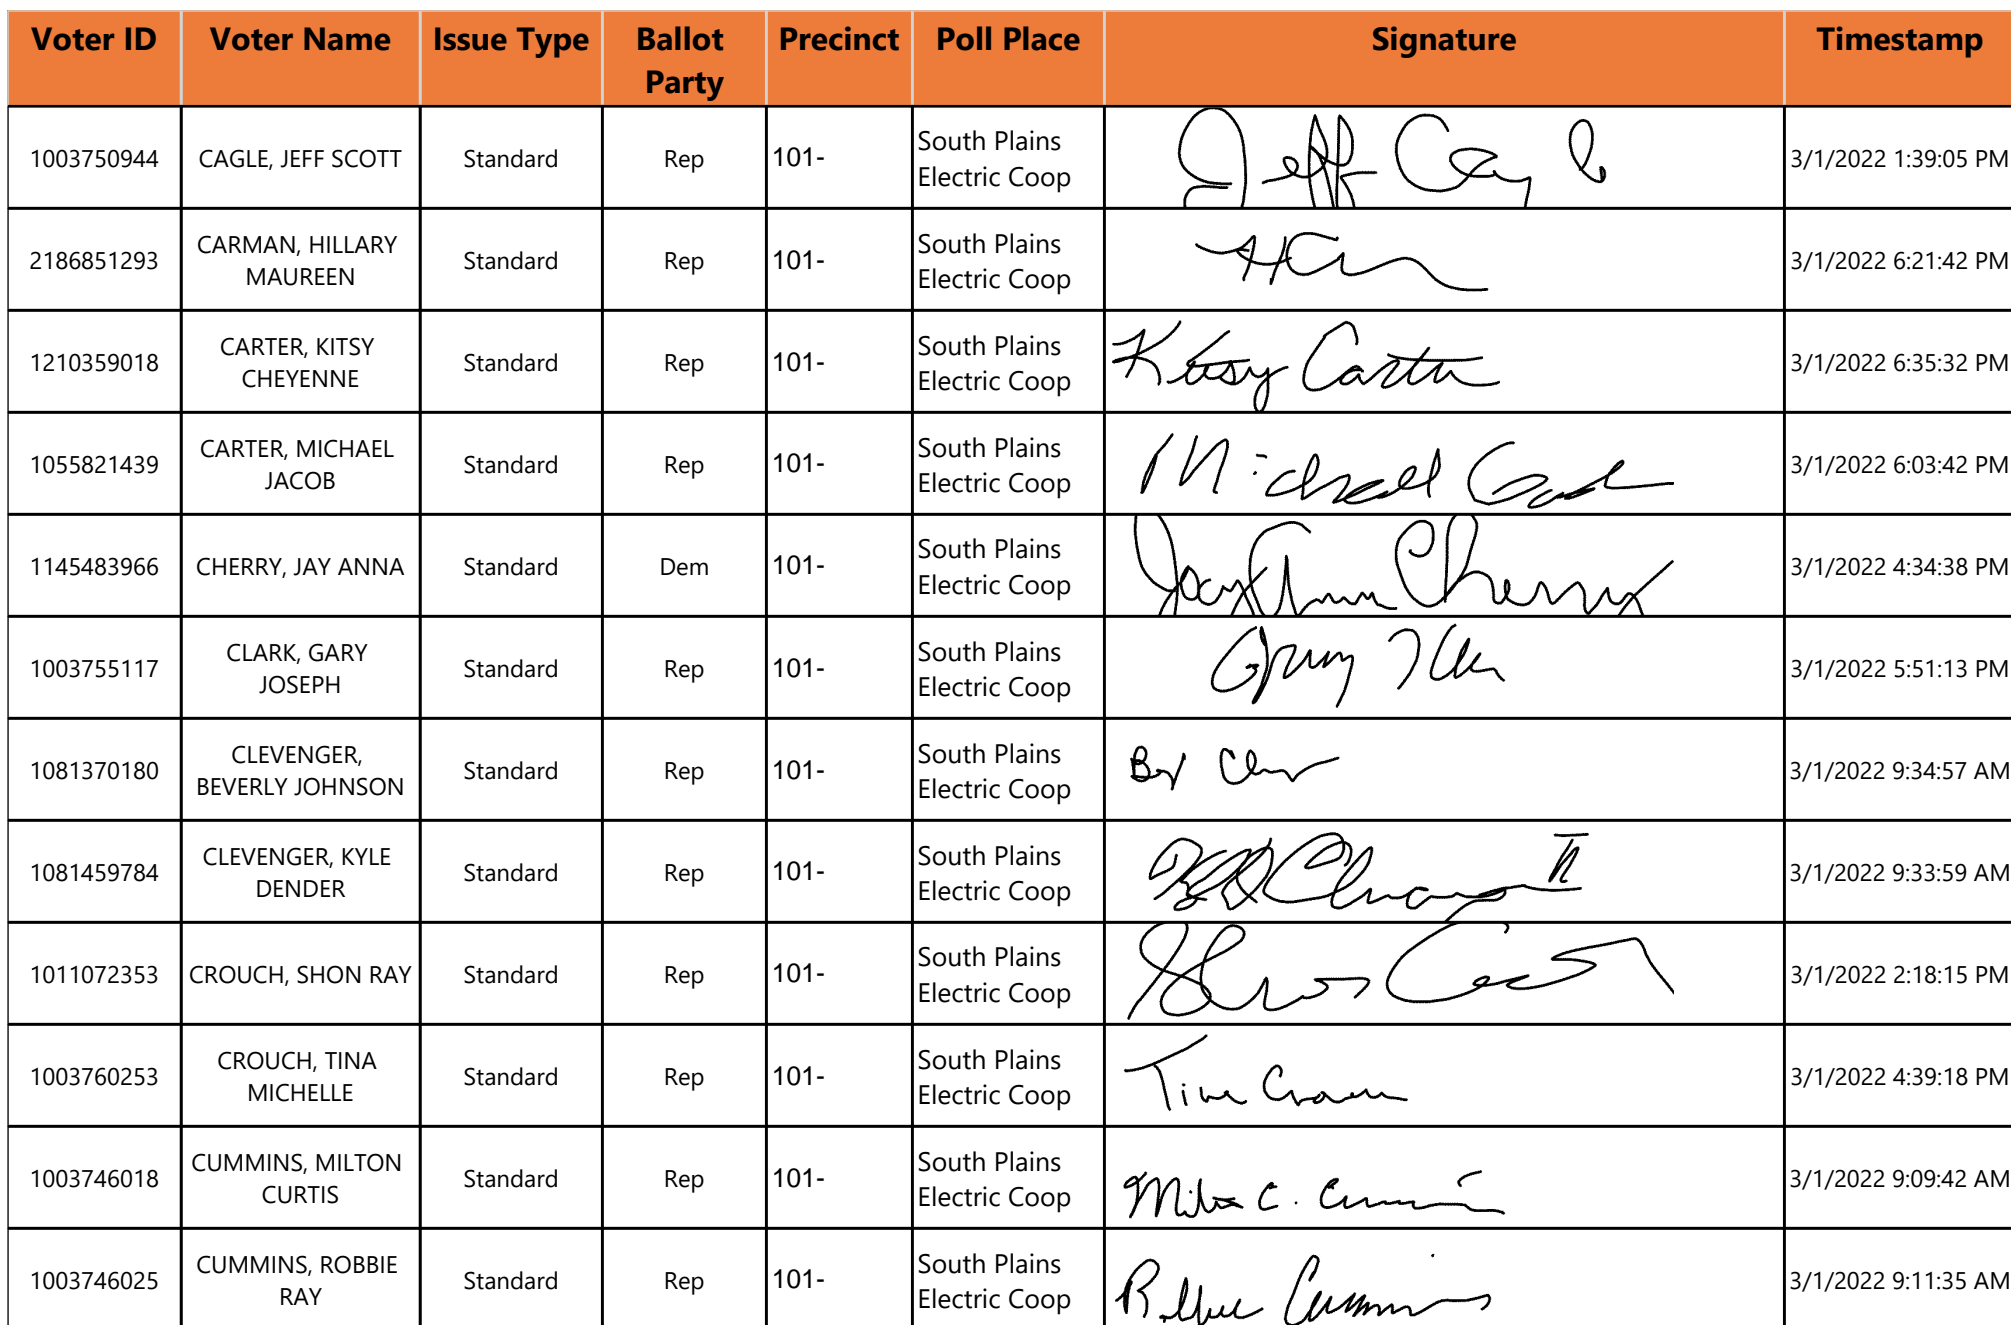 Voter ID Voter Name Issue Type Ballot Party Precinct Poll Place Signature Timestamp
1003750944 CAGLE, JEFF SCOTT Standard Rep 101- South Plains Electric Coop Jeff Cagle 3/1/2022 1:39:05 PM
2186851293 CARMAN, HILLARY MAUREEN Standard Rep 101- South Plains Electric Coop 3/1/2022 6:21:42 PM
1210359018 CARTER, KITSY CHEYENNE Standard Rep 101- South Plains Electric Coop Kitsy Carter 3/1/2022 6:35:32 PM
1055821439 CARTER, MICHAEL JACOB Standard Rep 101- South Plains Electric Coop Michael 3/1/2022 6:03:42 PM
1145483966 CHERRY, JAY ANNA Standard Dem 101- South Plains Electric Coop Jay Ann Cherry 3/1/2022 4:34:38 PM
1003755117 CLARK, GARY JOSEPH Standard Rep 101- South Plains Electric Coop Gary 3/1/2022 5:51:13 PM
1081370180 CLEVENGER, BEVERLY JOHNSON Standard Rep 101- South Plains Electric Coop 3/1/2022 9:34:57 AM
1081459784 CLEVENGER, KYLE DENDER Standard Rep 101- South Plains Electric Coop II 3/1/2022 9:33:59 AM
1011072353 CROUCH, SHON RAY Standard Rep 101- South Plains Electric Coop Shon 3/1/2022 2:18:15 PM
1003760253 CROUCH, TINA MICHELLE Standard Rep 101- South Plains Electric Coop Tina 3/1/2022 4:39:18 PM
1003746018 CUMMINS, MILTON CURTIS Standard Rep 101- South Plains Electric Coop Milton C. Cummins 3/1/2022 9:09:42 AM
1003746025 CUMMINS, ROBBIE RAY Standard Rep 101- South Plains Electric Coop Robbie Cummins 3/1/2022 9:11:35 AM